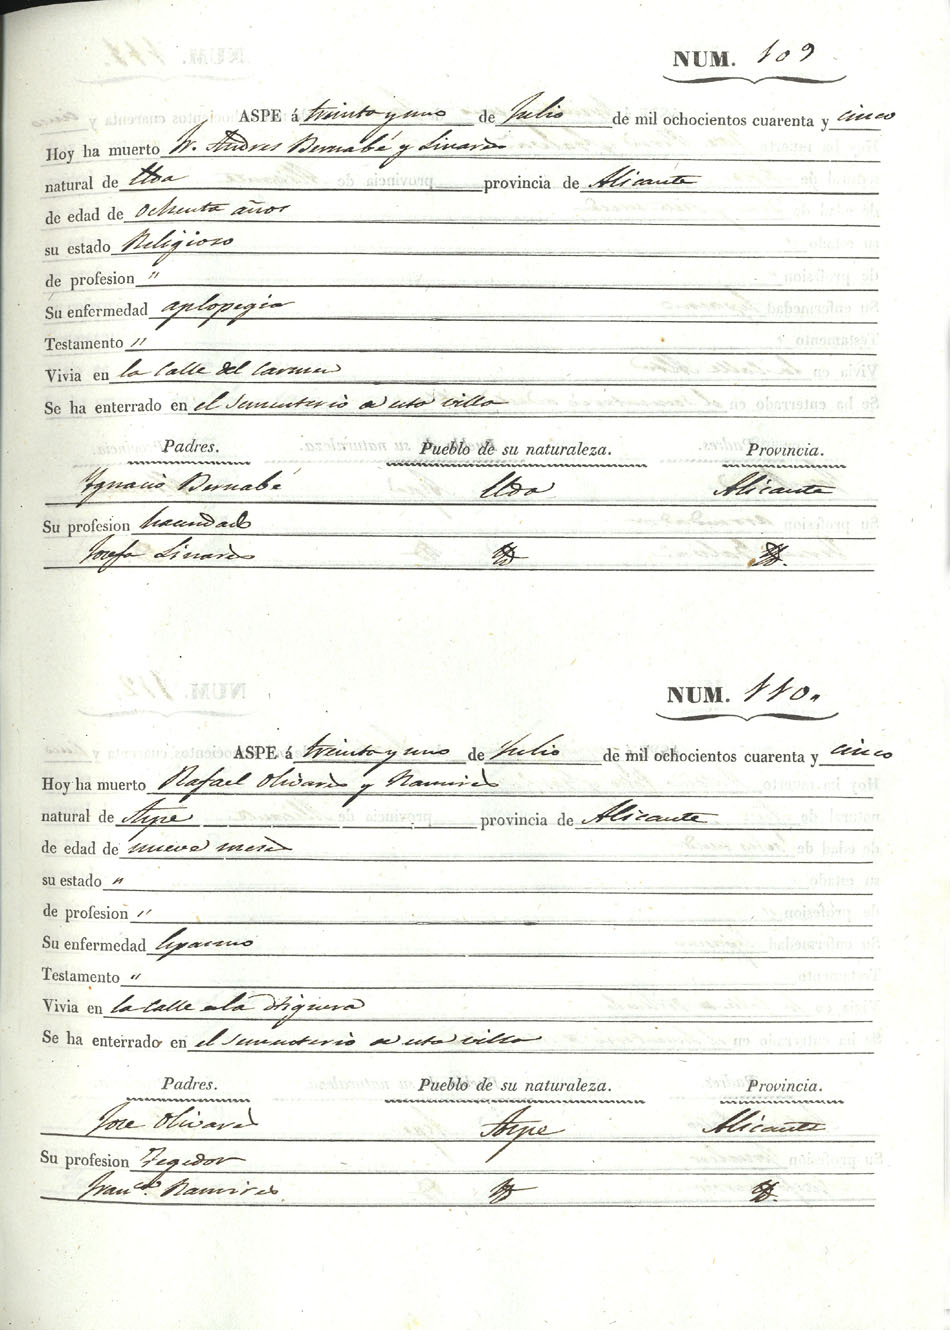 NUM. 109
ASPE á treinta y uno de Julio de mil ochocientos cuarenta y cinco
Hoy ha muerto Andres Bernabé y Linares
natural de Elda provincia de Alicante
de edad de ochenta años
su estado Religioso
de profesion "
Su enfermedad aplopegia
Testamento "
Vivia en la Calle del Carmen
Se ha enterrado en el Sementerio de esta villa
Padres. Pueblo de su naturaleza. Provincia.
Ygnacio Bernabé Elda Alicante
Su profesion hacendado
Josefa Linares
NUM. 110.
ASPE á treinta y uno de Julio de mil ochocientos cuarenta y cinco
Hoy ha muerto Rafael Olivares y Ramires
natural de Aspe provincia de Alicante
de edad de nueve meses
su estado "
de profesion "
Su enfermedad
Testamento "
Vivia en la Calle de la Higuera
Se ha enterrado en el Sementerio de esta villa
Padres. Pueblo de su naturaleza. Provincia.
Jose Olivares Aspe Alicante
Su profesion Tegedor
Fran.ca Ramires